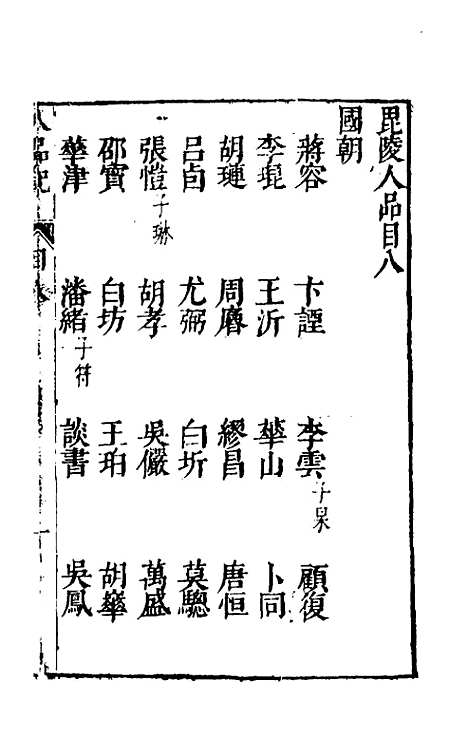 毘陵人品目八
國朝
蔣容 卞諲 李雲子杲 顧復
李琨 王沂 華山 卜同
胡璉 周麐 繆昌 唐恒
呂卣 尤弼 白圻 莫驄
張愷子琳 胡孝 吳儼 萬盛
邵寶 白坊 王珀 胡華
華津 潘緒子符 談書 吳鳳
人品記